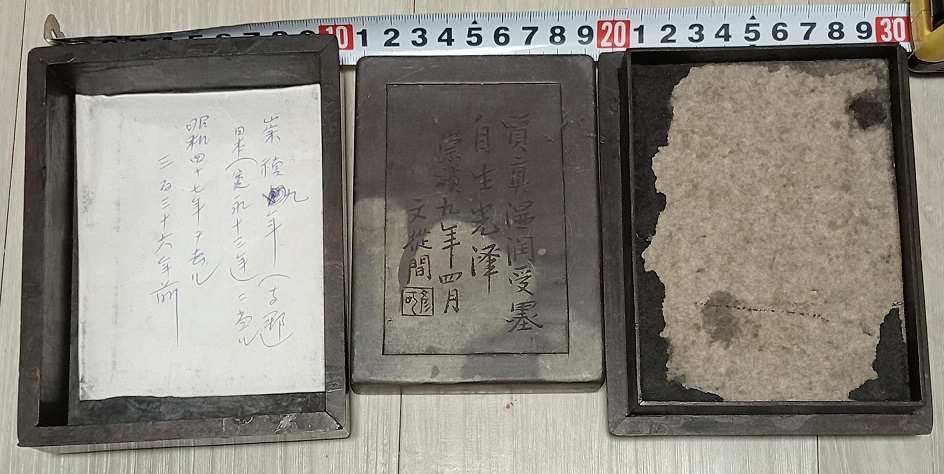 10 1 2 3 4 5 6 7 8 9 20 1 2 3 4 5 6 7 8 9 30
崇禎九年(支那)
日本(寛永十三年)ニ当ル
昭和四十七年ヨリ去ル
三百三十六年前
質真温润受墨
自生光泽
崇禎九年四月
文從簡